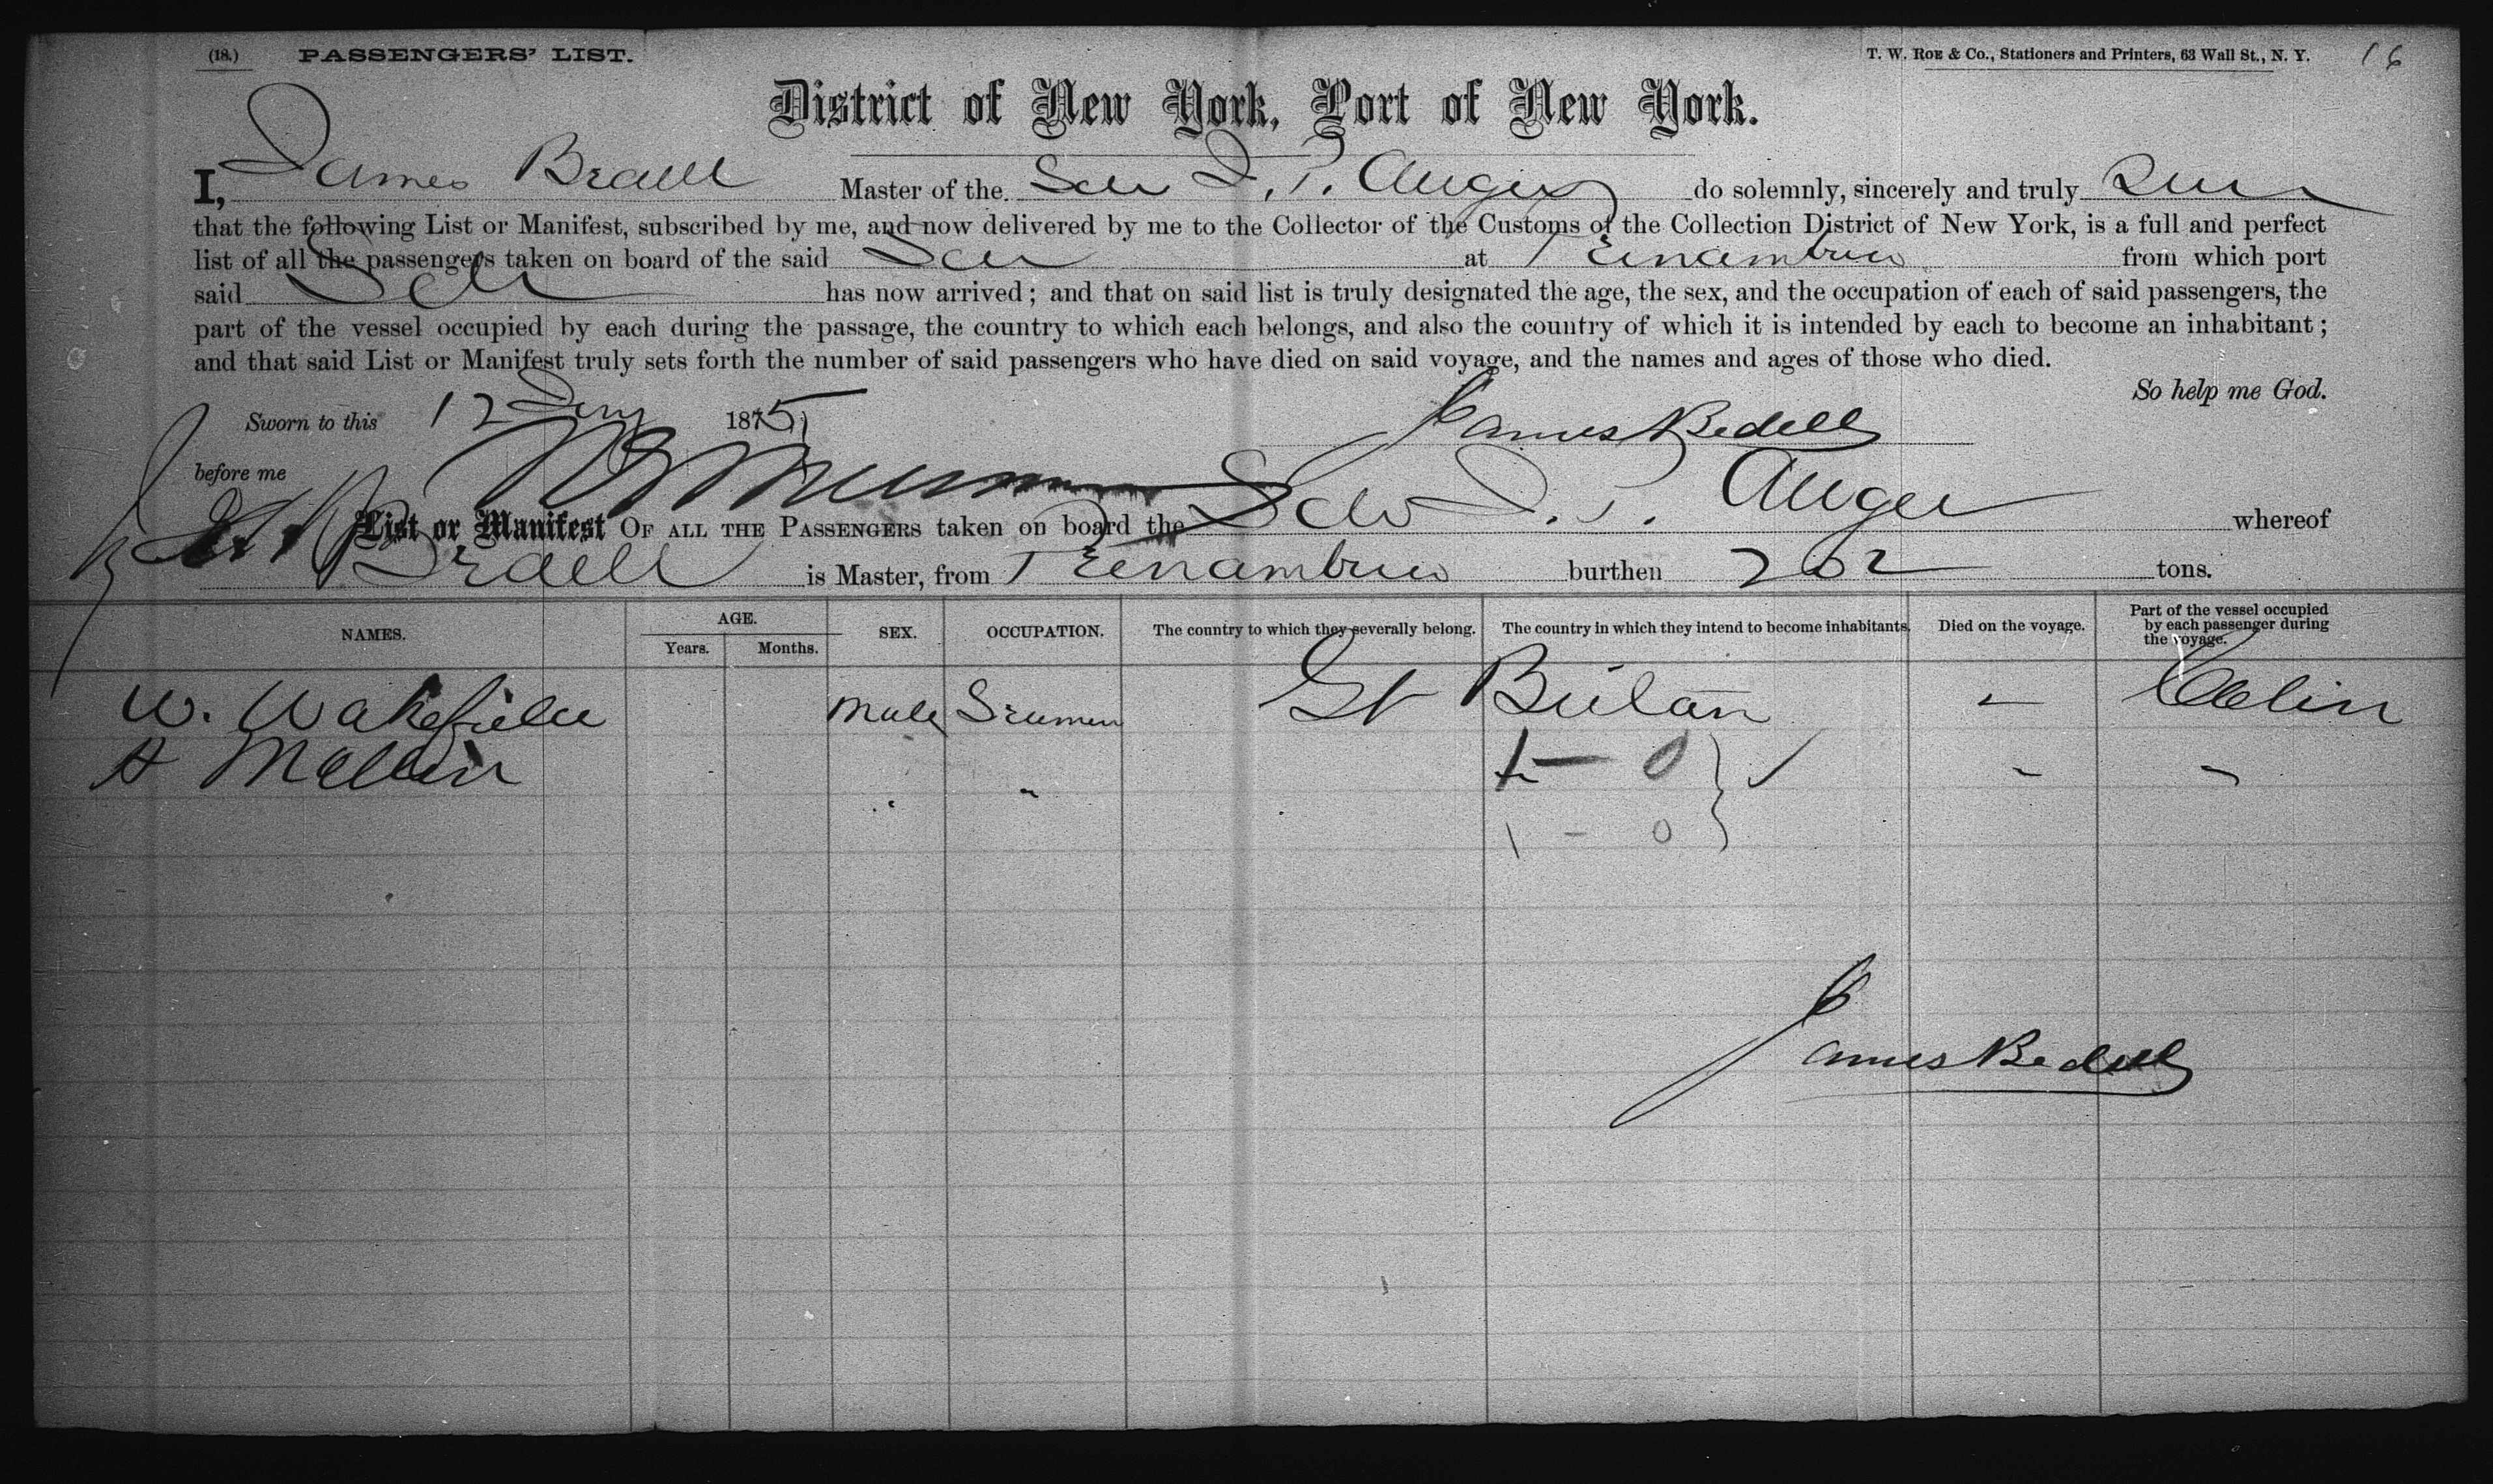 (18.) PASSENGERS' LIST. T. W. ROE & Co., Stationers and Printers, 63 Wall St., N. Y. 16
District of New York, Port of New York.
I, James Bedell Master of the Sch do solemnly, sincerely and truly
that the following List or Manifest, subscribed by me, and now delivered by me to the Collector of the Customs of the Collection District of New York, is a full and perfect
list of all the passengers taken on board of the said Sch at Pernambuco from which port
said Sch has now arrived; and that on said list is truly designated the age, the sex, and the occupation of each of said passengers, the
part of the vessel occupied by each during the passage, the country to which each belongs, and also the country of which it is intended by each to become an inhabitant;
and that said List or Manifest truly sets forth the number of said passengers who have died on said voyage, and the names and ages of those who died.
So help me God.
Sworn to this 12 1875 James Bedell
before me
List or Manifest OF ALL THE PASSENGERS taken on board the Sch whereof
Bedell is Master, from Pernambuco burthen 262 tons.
NAMES. AGE. Years. Months. SEX. OCCUPATION. The country to which they severally belong. The country in which they intend to become inhabitants. Died on the voyage. Part of the vessel occupied by each passenger during the voyage.
W. Wakefield Male Seamen Gt Britan - Cabin
A " " 1 - 0 - "
1 - 0
James Bedell